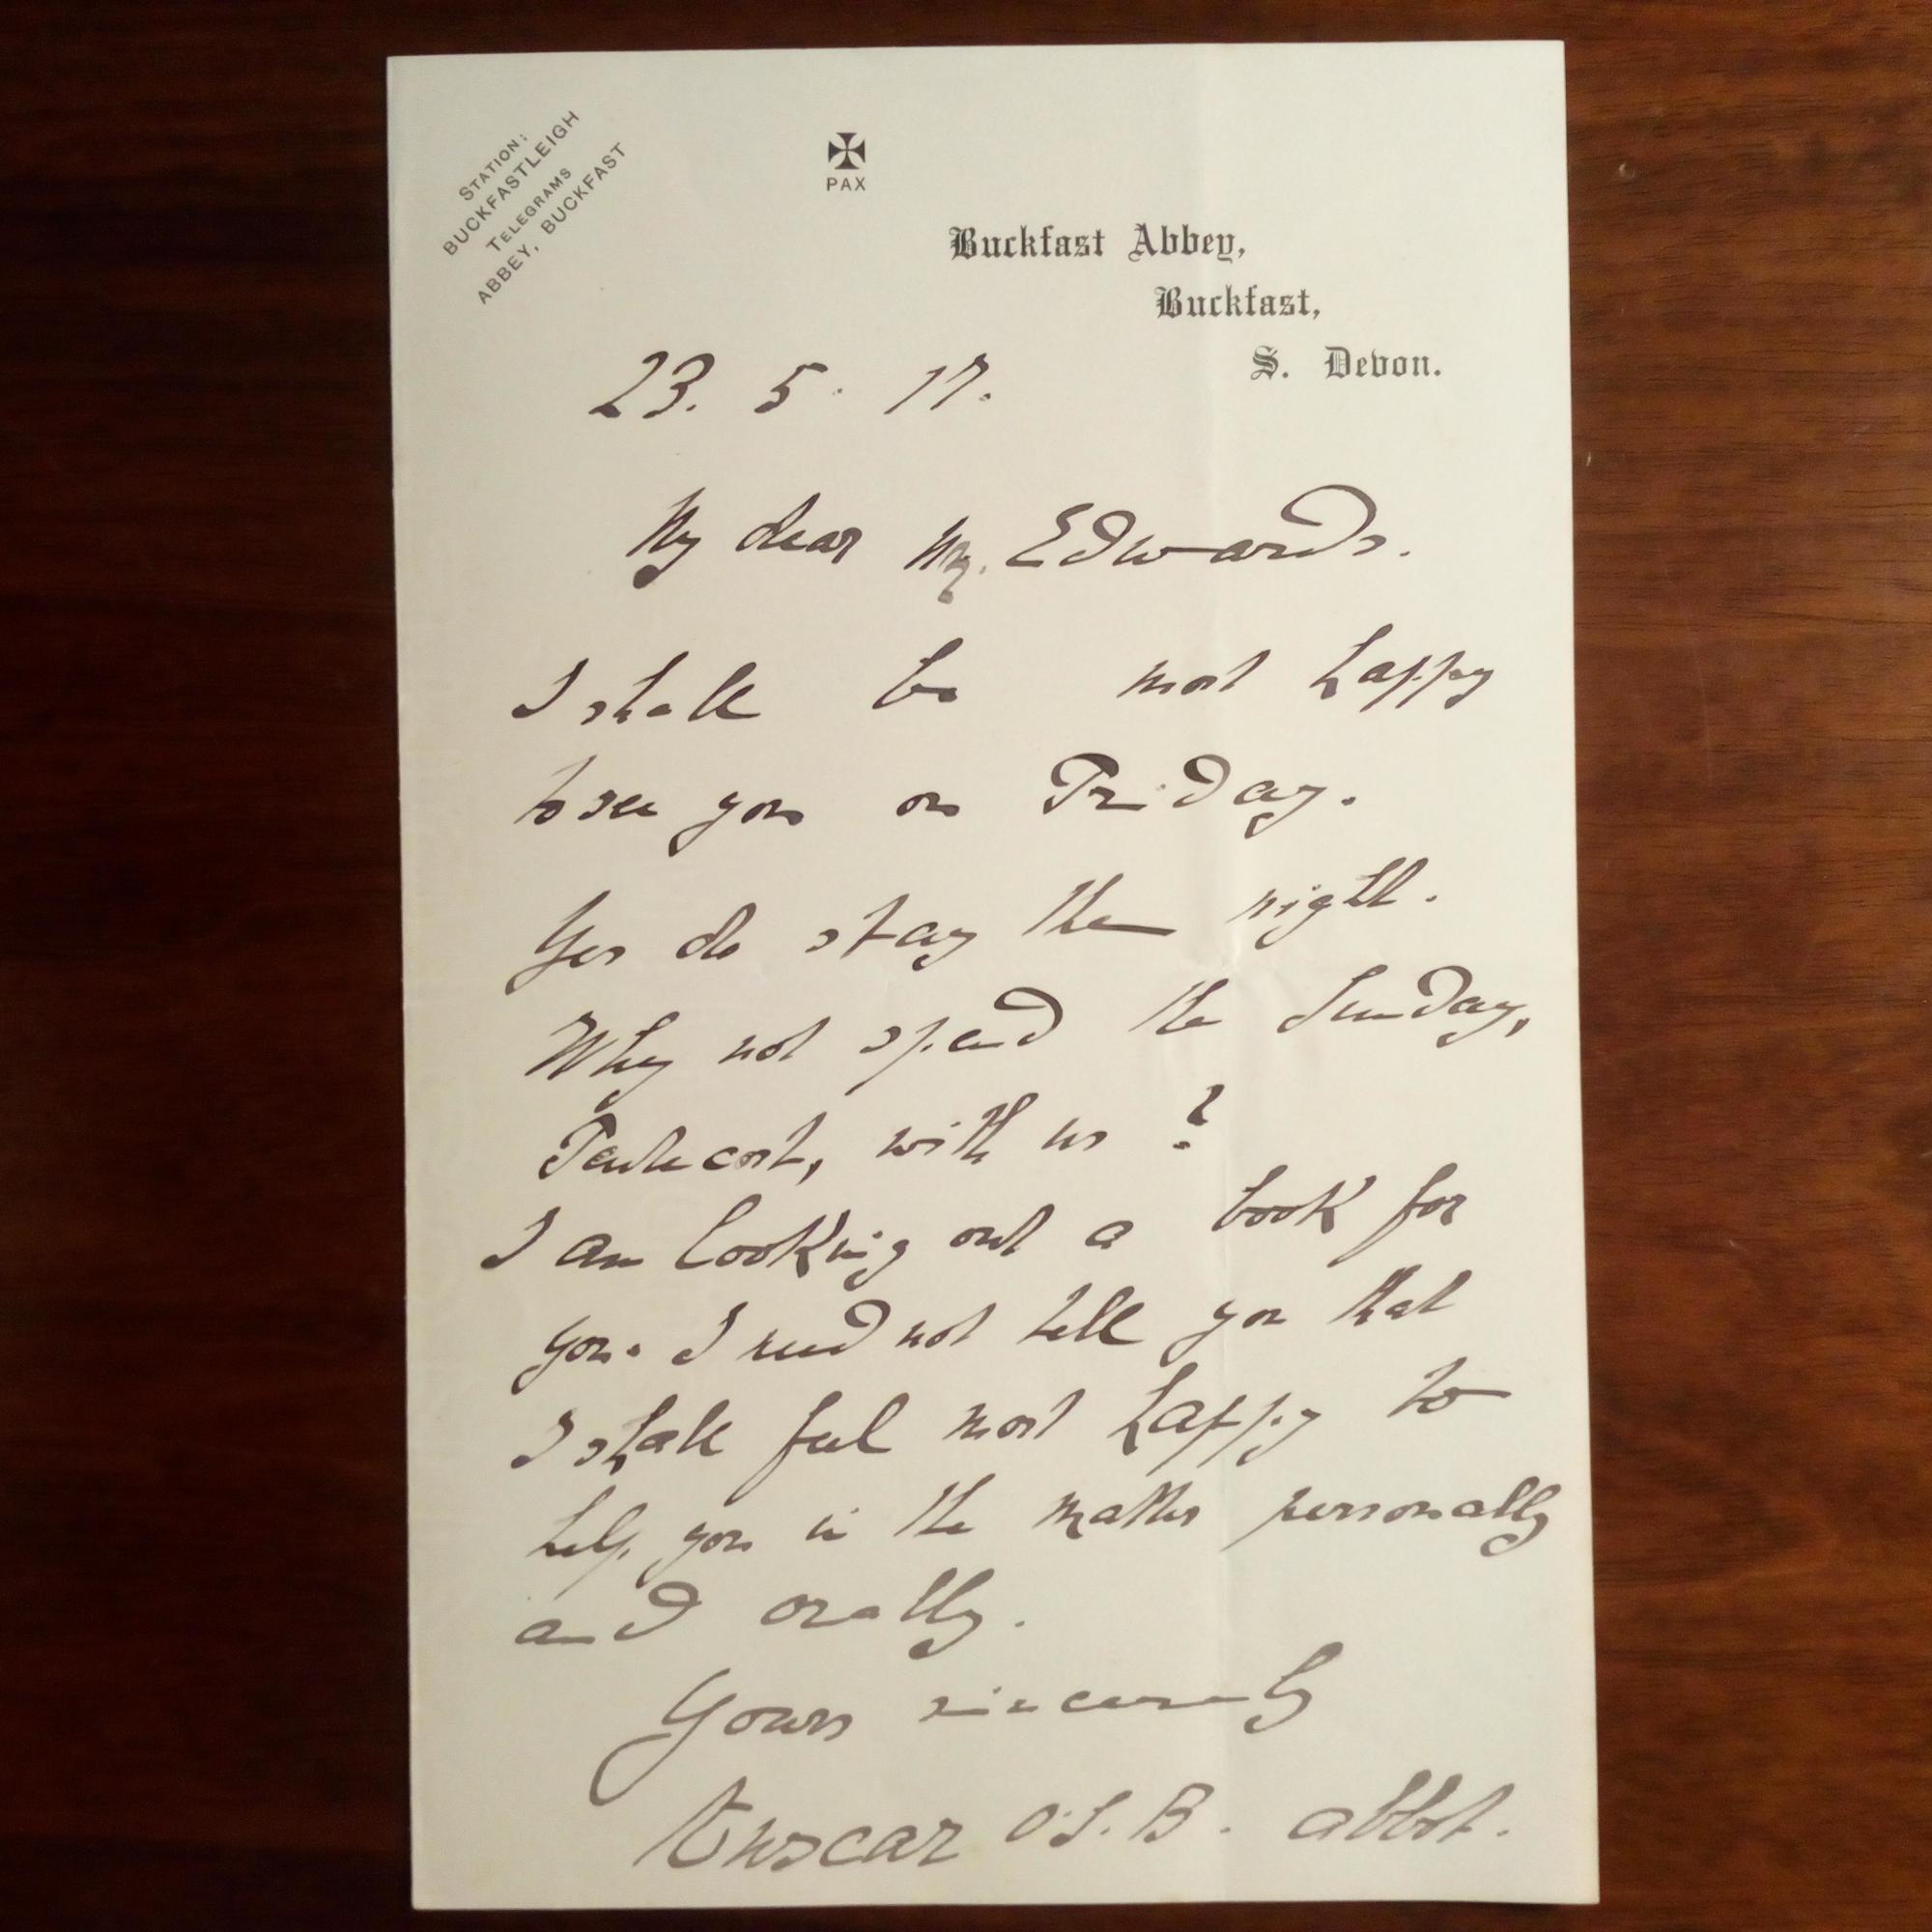 STATION:
BUCKFASTLEIGH
TELEGRAMS
ABBEY, BUCKFAST
PAX
Buckfast Abbey,
Buckfast,
S. Devon.
23. 5. 17.
My dear Mr. Edwards.
I shall be most happy
to see you on Friday.
Yes do stay the night.
Why not spend the Sunday,
Pentecost, with us?
I am looking out a book for
you. I need not tell you that
I shall feel most happy to
help you in the matter personally
and orally.
Yours sincerely
Anscar O.S.B. abbot.